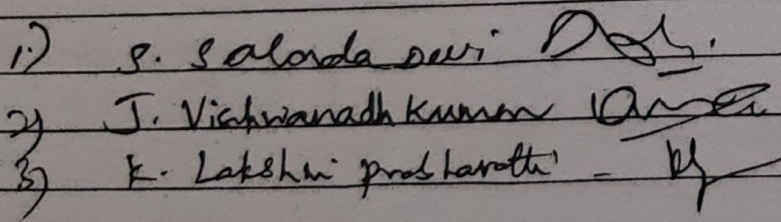 1.) S. Salada Devi
2) J. Vishwanadh Kumar
3) K. Lakshmi prabharathi -